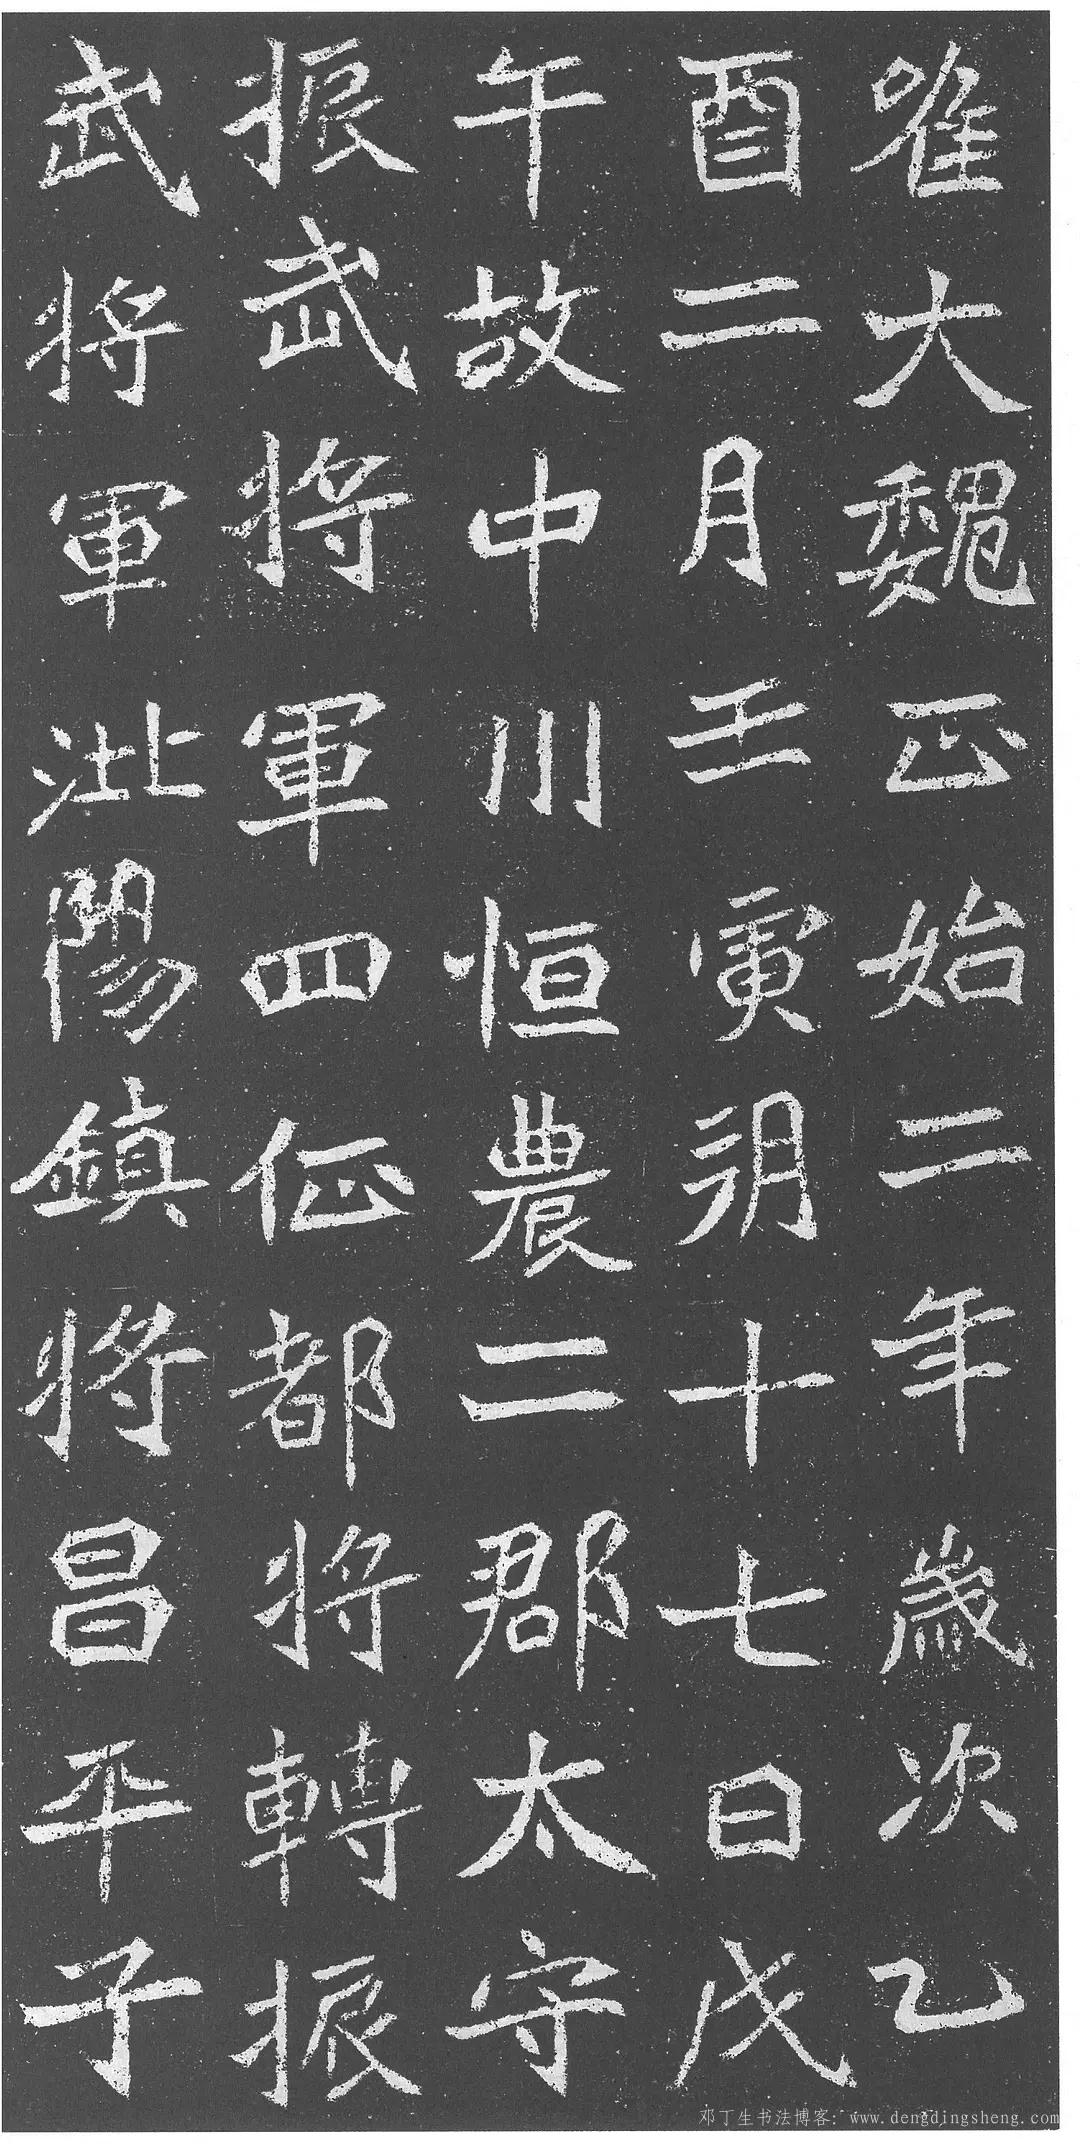 唯大魏正始二年歲次乙
酉二月壬寅朔十七日戊
午故中川恒農二郡太守
振武將軍四征都將轉振
武將軍沘陽鎮將昌平子
邓丁生书法博客: www.dengdingsheng.com